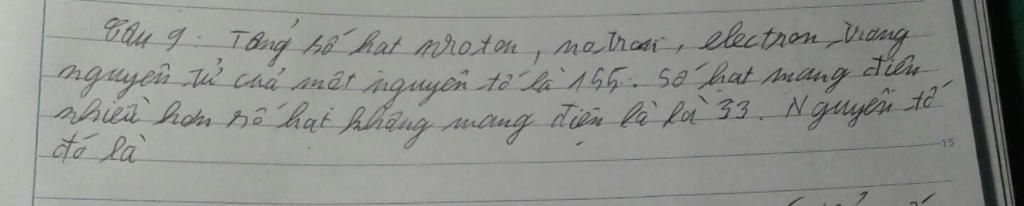 Câu 9. Tổng số hạt proton, nơtron, electron trong
nguyên tử của một nguyên tố là 155. Số hạt mang điện
nhiều hơn số hạt không mang điện là là 33. Nguyên tố
đó là
15